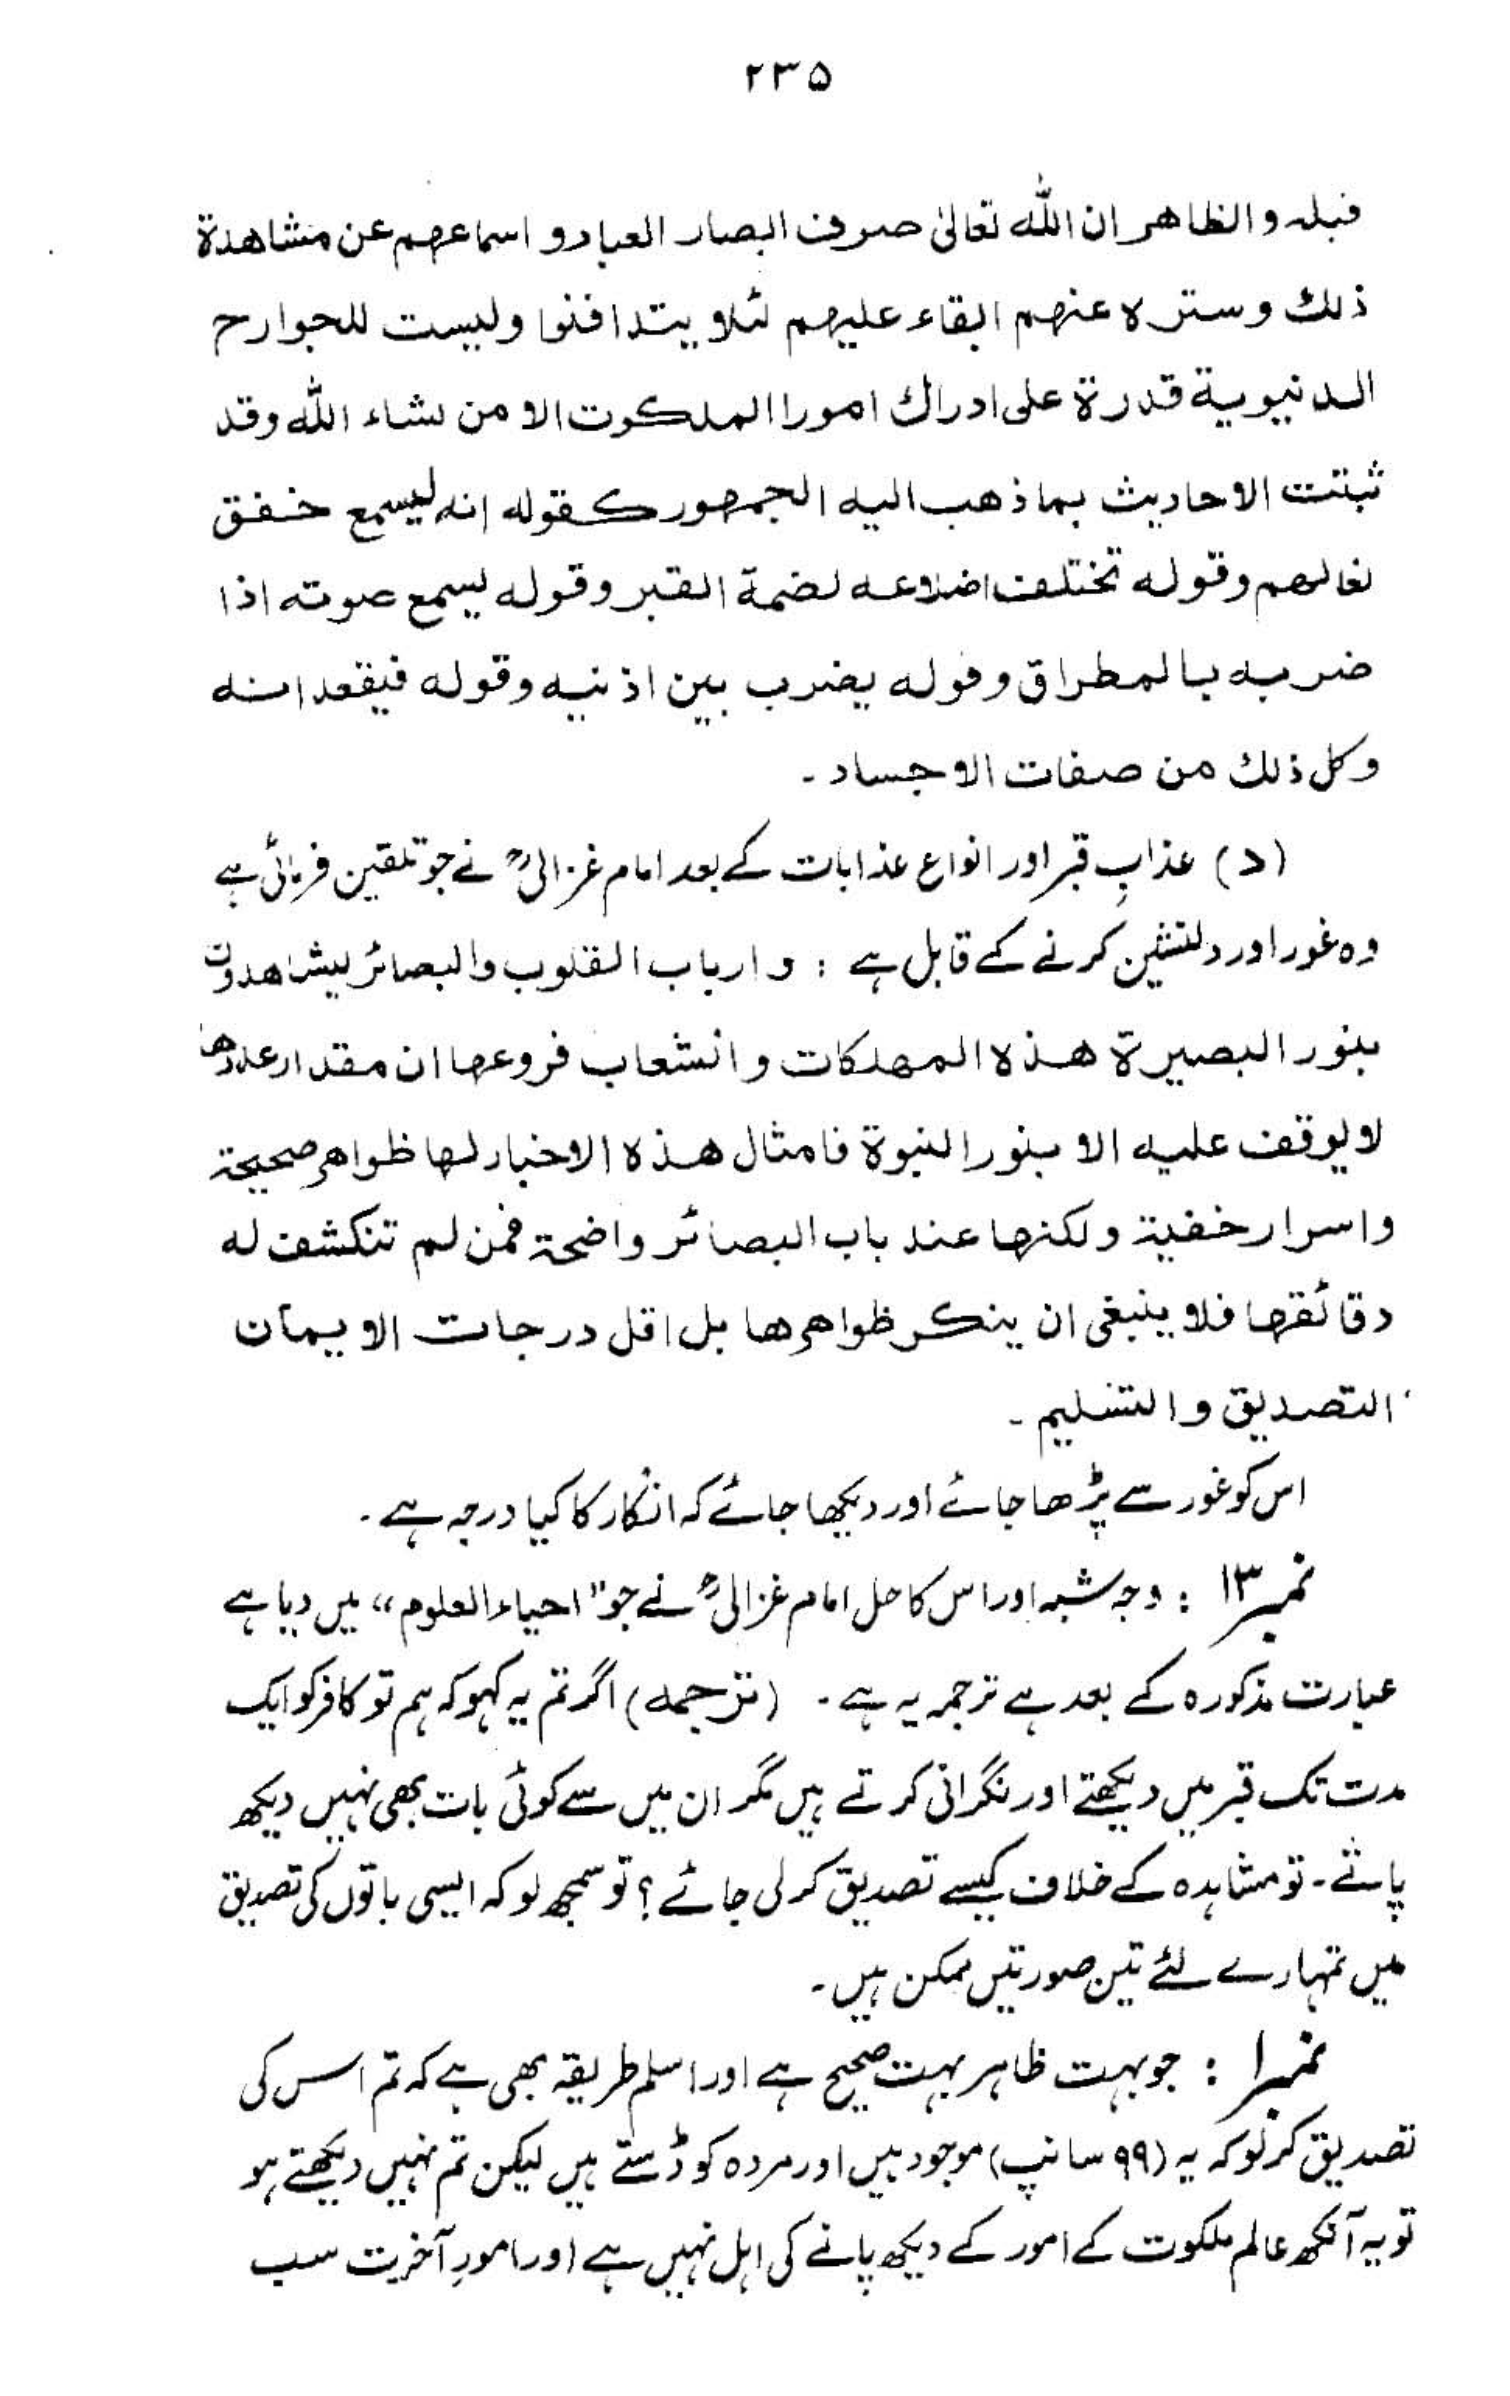 ۲۳۵
قبله والظاهر ان الله تعالیٰ صرف ابصار العباد و اسماعهم عن مشاهدة
ذلك وستره عنهم ابقاء عليهم لئلا يتدافنوا وليست للجوارح
الدنيوية قدرة على ادراك امورا الملكوت الا من شاء الله وقد
ثبتت الاحاديث بما ذهب اليه الجمهور كقوله انه ليسمع خفق
نعالهم وقوله تختلف اضلاعه لضمة القبر وقوله يسمع صوته اذا
ضربه بالمطراق وقوله يضرب بين اذنيه وقوله فيقعد انه
وكل ذلك من صفات الاجساد ۔
(د) عذابِ قبر اور انواع عذابات کے بعد امام غزالیؒ نے جو تلقین فرمائی ہے
وہ غور اور دلنشین کرنے کے قابل ہے : و ارباب القلوب والبصائر يشاهدون
بنور البصيرة هذه المهلكات و انشعاب فروعها ان مقدار عددها
لا يوقف عليه الا بنور النبوة فامثال هذه الاخبار لها ظواهر صحيحة
واسرار خفية ولكنها عند باب البصائر واضحة فمن لم تنكشف له
دقائقها فلا ينبغى ان ينكر ظواهرها بل اقل درجات الايمان
التصديق والتسليم ۔
اس کو غور سے پڑھا جائے اور دیکھا جائے کہ انکار کا کیا درجہ ہے ۔
نمبر ۱۳ : وجہ شبہ اور اس کا حل امام غزالیؒ نے جو ”احیاء العلوم“ میں دیا ہے
عبارت مذکورہ کے بعد ہے ترجمہ یہ ہے ۔ (ترجمہ) اگر تم یہ کہو کہ ہم تو کافر کو ایک
مدت تک قبر میں دیکھتے اور نگرانی کرتے ہیں مگر ان میں سے کوئی بات بھی نہیں دیکھ
پاتے ۔ تو مشاہدہ کے خلاف کیسے تصدیق کر لی جائے ؟ تو سمجھ لو کہ ایسی باتوں کی تصدیق
میں تمہارے لئے تین صورتیں ممکن ہیں ۔
نمبر ۱ : جو بہت ظاہر بہت صحیح ہے اور اسلم طریقہ بھی ہے کہ تم اس کی
تصدیق کر لو کہ یہ (۹۹ سانپ) موجود ہیں اور مردہ کو ڈستے ہیں لیکن تم نہیں دیکھتے ہو
تو یہ آنکھ عالم ملکوت کے امور کے دیکھ پانے کی اہل نہیں ہے اور امورِ آخرت سب